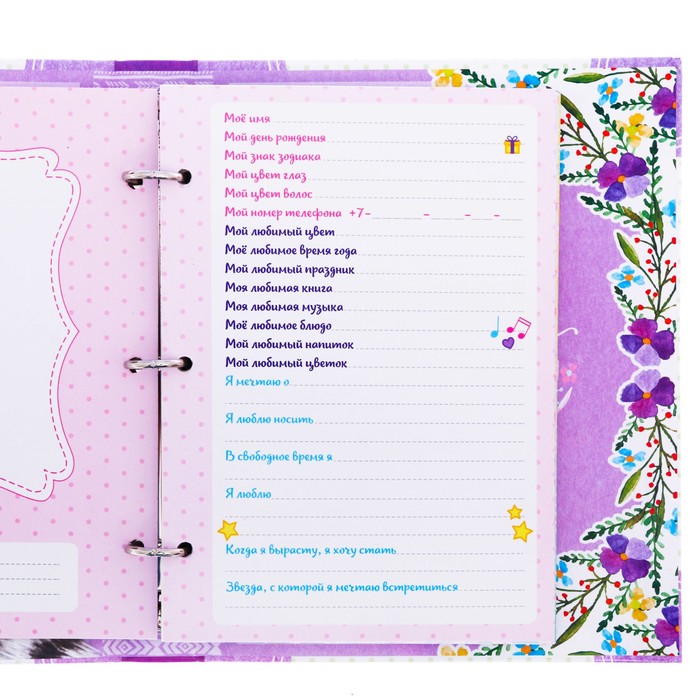 Моё имя
Мой день рождения
Мой знак зодиака
Мой цвет глаз
Мой цвет волос
Мой номер телефона +7- - - -
Мой любимый цвет
Моё любимое время года
Мой любимый праздник
Моя любимая книга
Моя любимая музыка
Моё любимое блюдо
Мой любимый напиток
Мой любимый цветок
Я мечтаю о
Я люблю носить
В свободное время я
Я люблю
Когда я вырасту, я хочу стать
Звезда, с которой я мечтаю встретиться